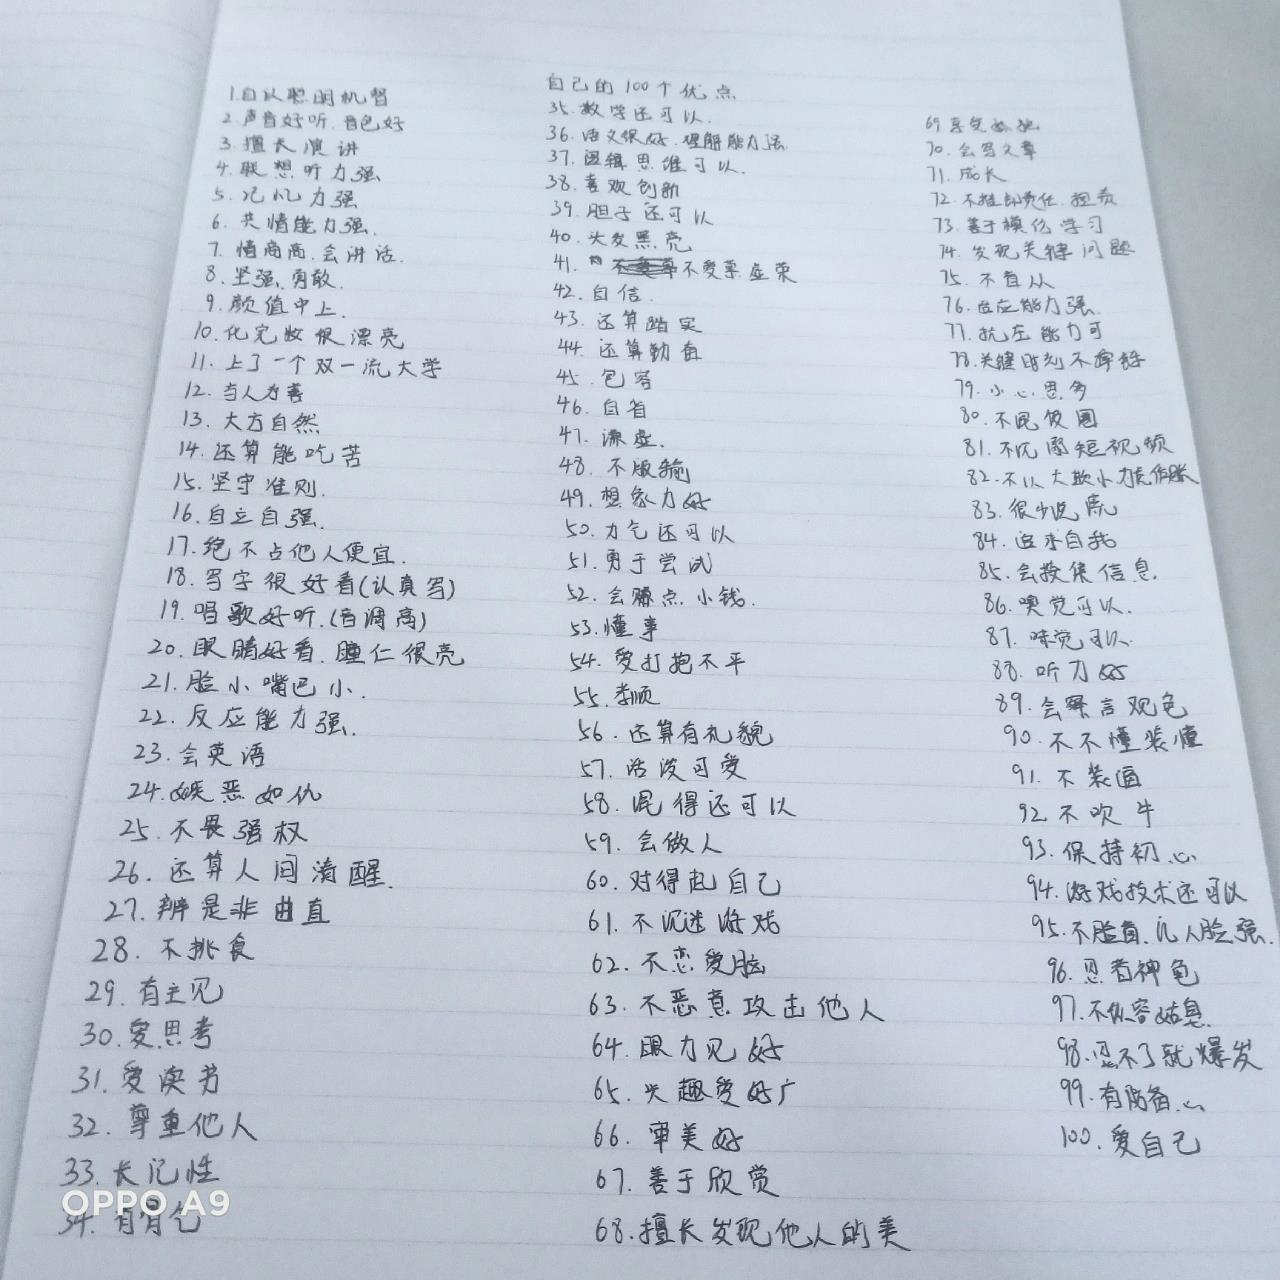 自己的100个优点
1.自认聪明机智
2.声音好听.音色好
3.擅长演讲
4.联想听力强
5.记忆力强
6.共情能力强.
7.情商高.会讲话.
8.坚强.勇敢.
9.颜值中上.
10.化完妆很漂亮
11.上了一个双一流大学
12.与人为善
13.大方自然
14.还算能吃苦
15.坚守准则.
16.自立自强.
17.绝不占他人便宜.
18.写字很好看(认真写)
19.唱歌好听.(音调高)
20.眼睛好看.瞳仁很亮
21.脸小嘴巴小.
22.反应能力强.
23.会英语
24.嫉恶如仇
25.不畏强权
26.还算人间清醒.
27.辨是非曲直
28.不挑食
29.有主见
30.爱思考
31.爱读书
32.尊重他人
33.长记性
34.有骨气
35.数学还可以.
36.语文很好.理解能力强
37.逻辑思维可以.
38.喜欢创新
39.胆子还可以
40.头发黑亮
41.不爱慕虚荣
42.自信.
43.还算踏实
44.还算勤奋
45.包容
46.自省
47.谦虚.
48.不服输
49.想象力好
50.力气还可以
51.勇于尝试
52.会赚点小钱.
53.懂事
54.爱打抱不平
55.孝顺
56.还算有礼貌
57.活泼可爱
58.混得还可以
59.会做人
60.对得起自己
61.不沉迷游戏
62.不恋爱脑
63.不恶意攻击他人
64.眼力见好
65.兴趣爱好广
66.审美好
67.善于欣赏
68.擅长发现他人的美
69.享受孤独
70.会写文章
71.成长
72.不推卸责任.担责
73.善于模仿学习
74.发现关键问题
75.不盲从
76.适应能力强.
77.抗压能力可
78.关键时刻不掉链
79.小心思多
80.不民饭圈
81.不沉溺短视频
82.不以大欺小
83.很少说
84.追求自我
85.会搜集信息
86.嗅觉可以.
87.味觉可以
88.听力好
89.会察言观色
90.不不懂装懂
91.不装逼
92.不吹牛
93.保持初心
94.游戏技术还可以
95.不脸盲.记人脸强.
96.忍者神龟
97.不纵容姑息
98.忍不了就爆发
99.有防备心
100.爱自己
OPPO A9